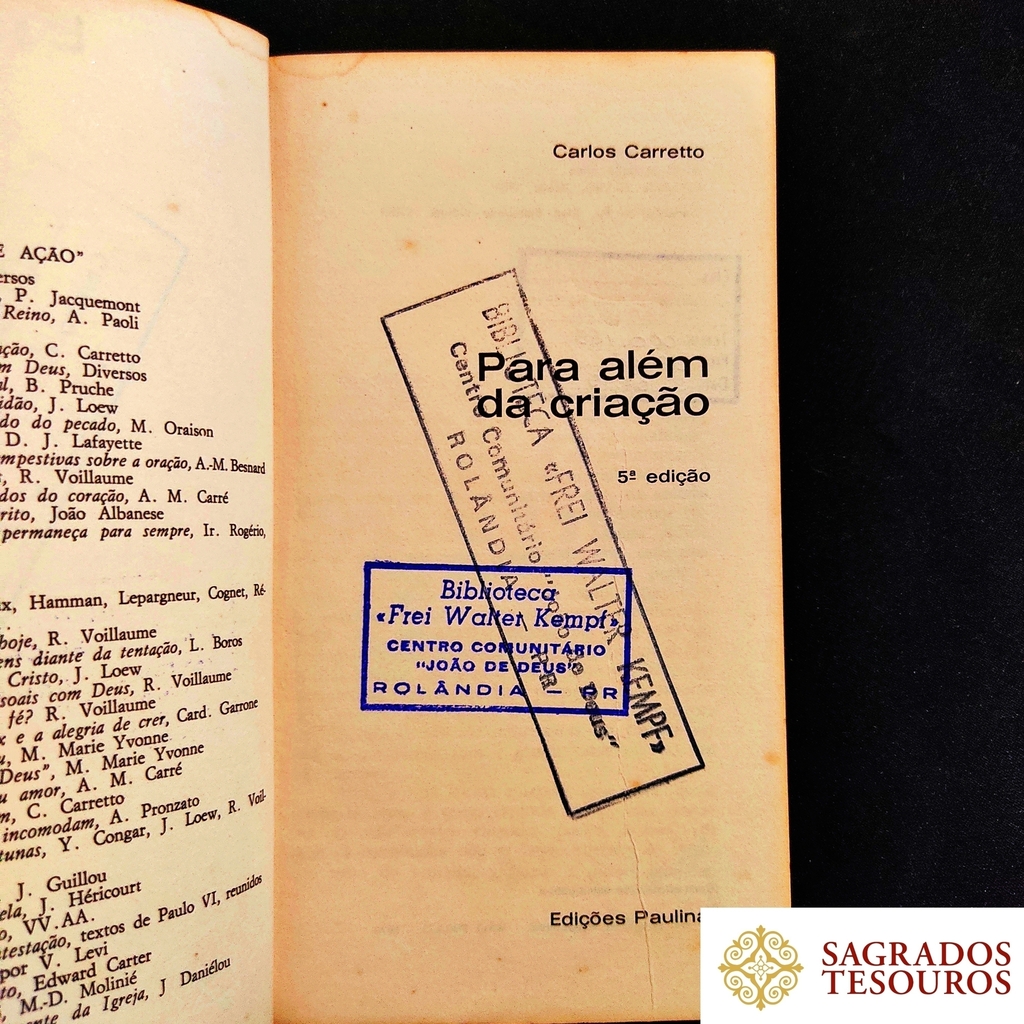 E AÇÃO"
ersos
, P. Jacquemont
Reino, A. Paoli
ção, C. Carretto
m Deus, Diversos
l, B. Pruche
idão, J. Loew
do do pecado, M. Oraison
D. J. Lafayette
mpestivas sobre a oração, A.-M. Besnard
, R. Voillaume
dos do coração, A. M. Carré
rito, João Albanese
permaneça para sempre, Ir. Rogério,
ux, Hamman, Lepargneur, Cognet, Ré-
hoje, R. Voillaume
ens diante da tentação, L. Boros
Cristo, J. Loew
soais com Deus, R. Voillaume
fé? R. Voillaume
x e a alegria de crer, Card. Garrone
u, M. Marie Yvonne
Deus", M. Marie Yvonne
u amor, A. M. Carré
m, C. Carretto
incomodam, A. Pronzato
tunas, Y. Congar, J. Loew, R. Voil-
J. Guillou
ela, J. Héricourt
o, VV.AA.
ntestação, textos de Paulo VI, reunidos
por V. Levi
to, Edward Carter
, M.-D. Molinié
ente da Igreja, J Daniélou
Carlos Carretto
Para além
da criação
5ª edição
BIBLIOTECA «FREI WALTER KEMPF»
Centro Comunitário "João de Deus"
ROLÂNDIA - PR
Biblioteca
«Frei Walter Kempf»
CENTRO COMUNITÁRIO
"JOÃO DE DEUS"
ROLÂNDIA — PR
Edições Paulina
SAGRADOS
TESOUROS